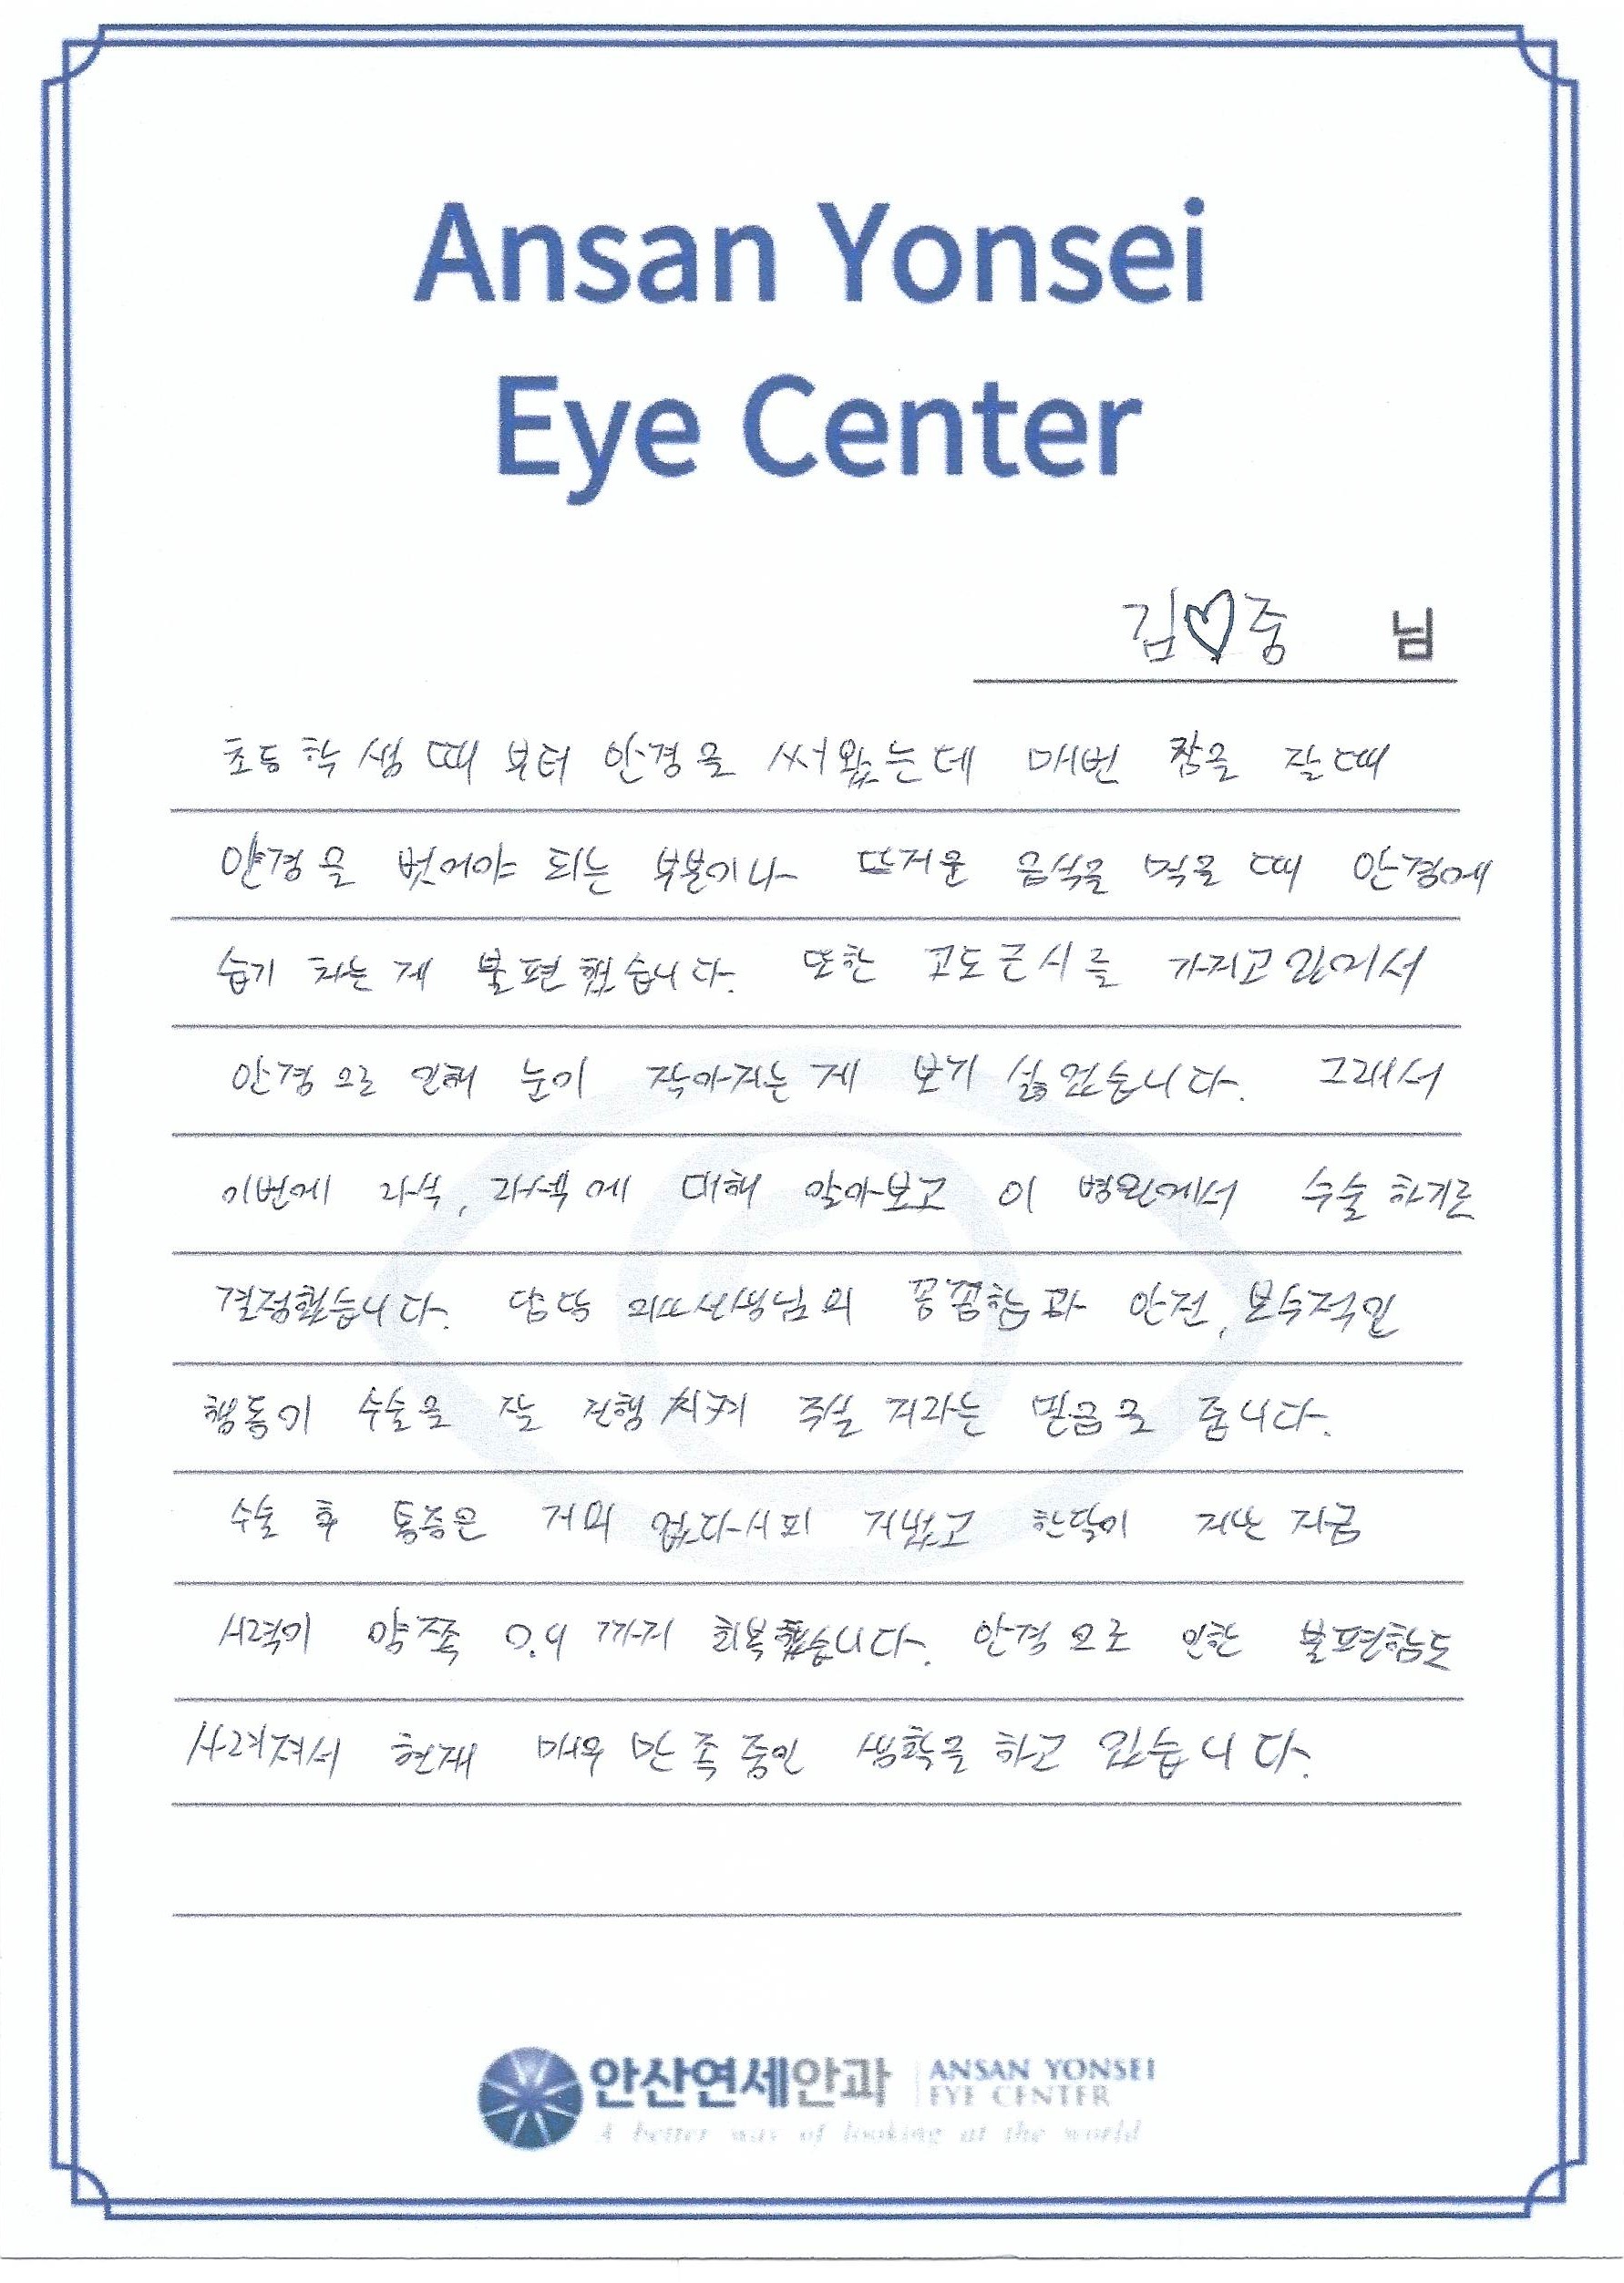 Ansan Yonsei
Eye Center
김♡중 님
초등학생 때 부터 안경을 써왔는데 매번 잠을 잘 때
안경을 벗어야 되는 부분이나 뜨거운 음식을 먹을 때 안경에
습기 차는 게 불편했습니다. 또한 고도근시를 가지고 있어서
안경으로 인해 눈이 작아지는 게 보기 싫었습니다. 그래서
이번에 라식, 라섹에 대해 알아보고 이 병원에서 수술하기로
결정했습니다. 담당 의사선생님의 꼼꼼함과 안전, 보수적인
행동이 수술을 잘 진행 시켜 주실 거라는 믿음을 줍니다.
수술 후 통증은 거의 없다시피 지냈고 한달이 지난 지금
시력이 양쪽 0.9 까지 회복했습니다. 안경으로 인한 불편함도
사라져서 현재 매우 만족 중인 생활을 하고 있습니다.
안산연세안과 ANSAN YONSEI
EYE CENTER
A better way of looking at the world